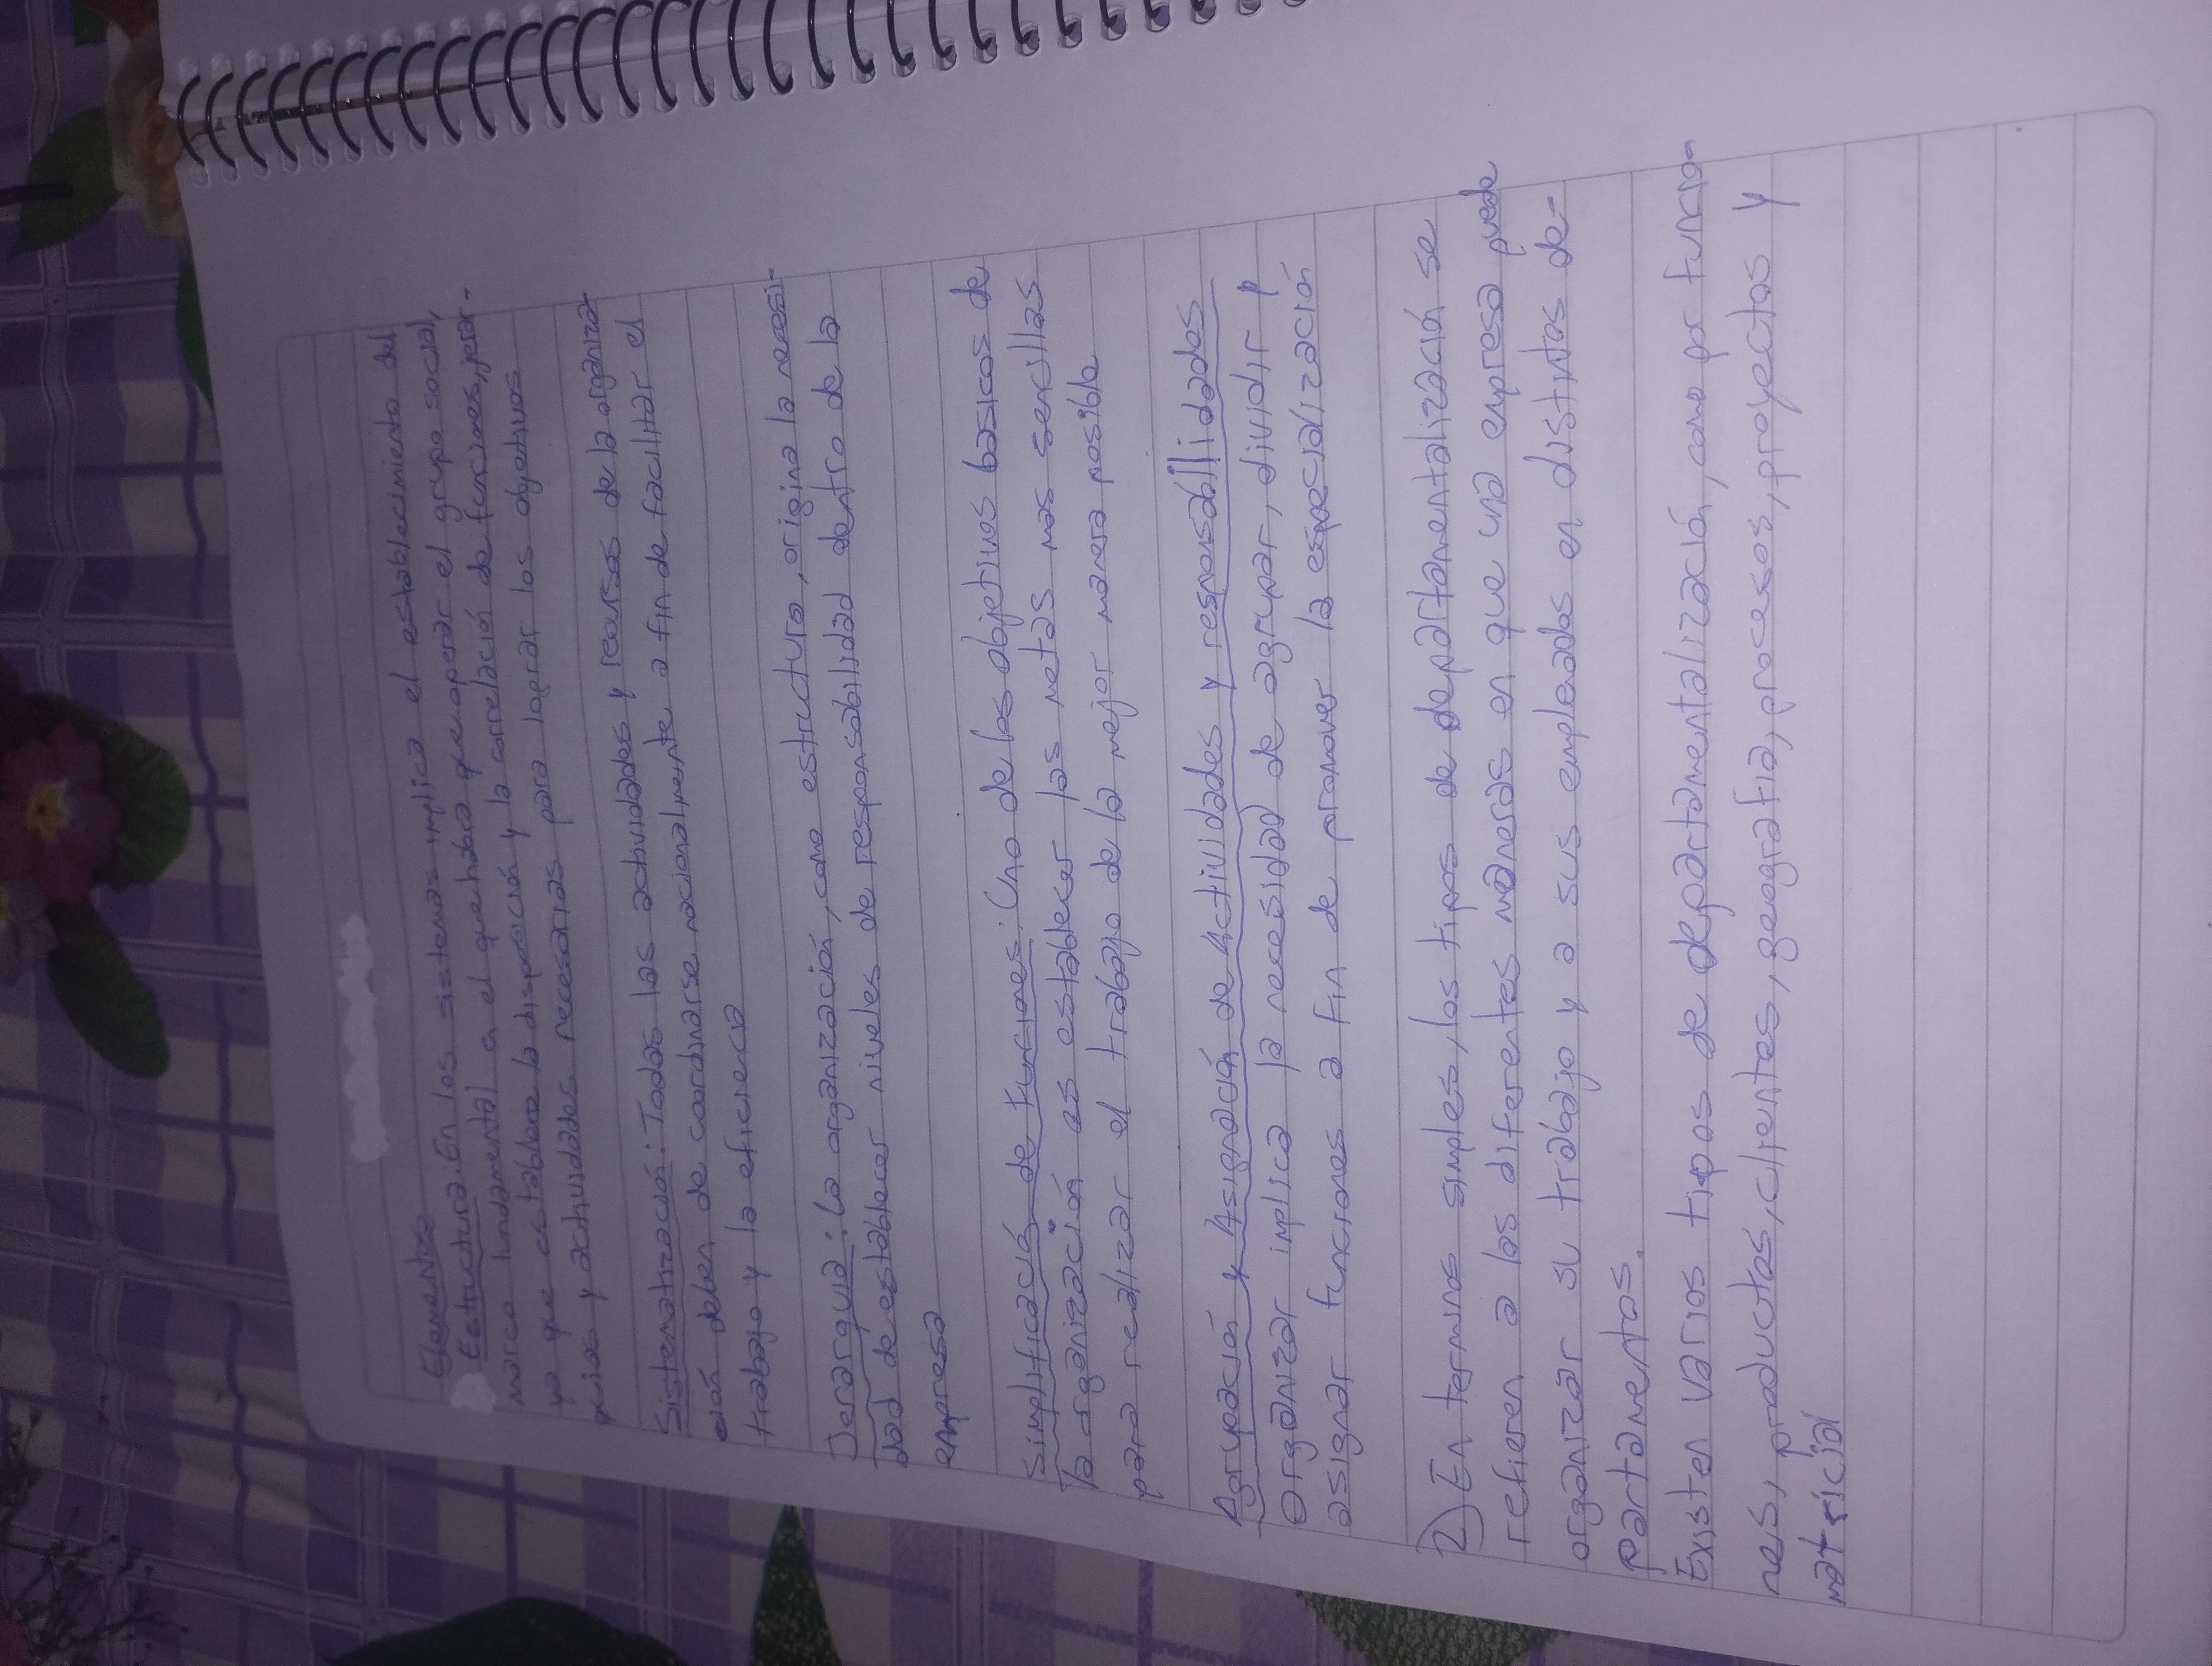 Elementos
Estructura: En los sistemas implica el establecimiento del
marco fundamental en el que habra que operar el grupo social,
ya que establece la disposición y la correlación de funciones, jerar-
quias y actividades necesarias para lograr los objetivos
Sistematización: Todas las actividades y recursos de la organiza-
ción deben de coordinarse racionalmente a fin de facilitar el
trabajo y la eficiencia
Jerarquia: La organización, como estructura, origina la necesi-
dad de establecer niveles de responsabilidad dentro de la
empresa
Simplificació de funciones: Uno de los objetivos basicos de
la organización es establecer los metas mas sencillas
para realizar el trabajo de la mejor manera posible
Agrupación y Asignación de Actividades y responsabilidades
Organizar implica la necesidad de agrupar, dividir y
asignar funciones a fin de promover la especialización
2) En terminos simples, los tipos de departamentalización se
refieren a las diferentes maneras en que una empresa puede
organizar su trabajo y a sus empleados en distintos de-
partamentos.
Existen varios tipos de departamentalización, como por funcio-
nes, productos, clientes, geografia, procesos, proyectos y
matricial